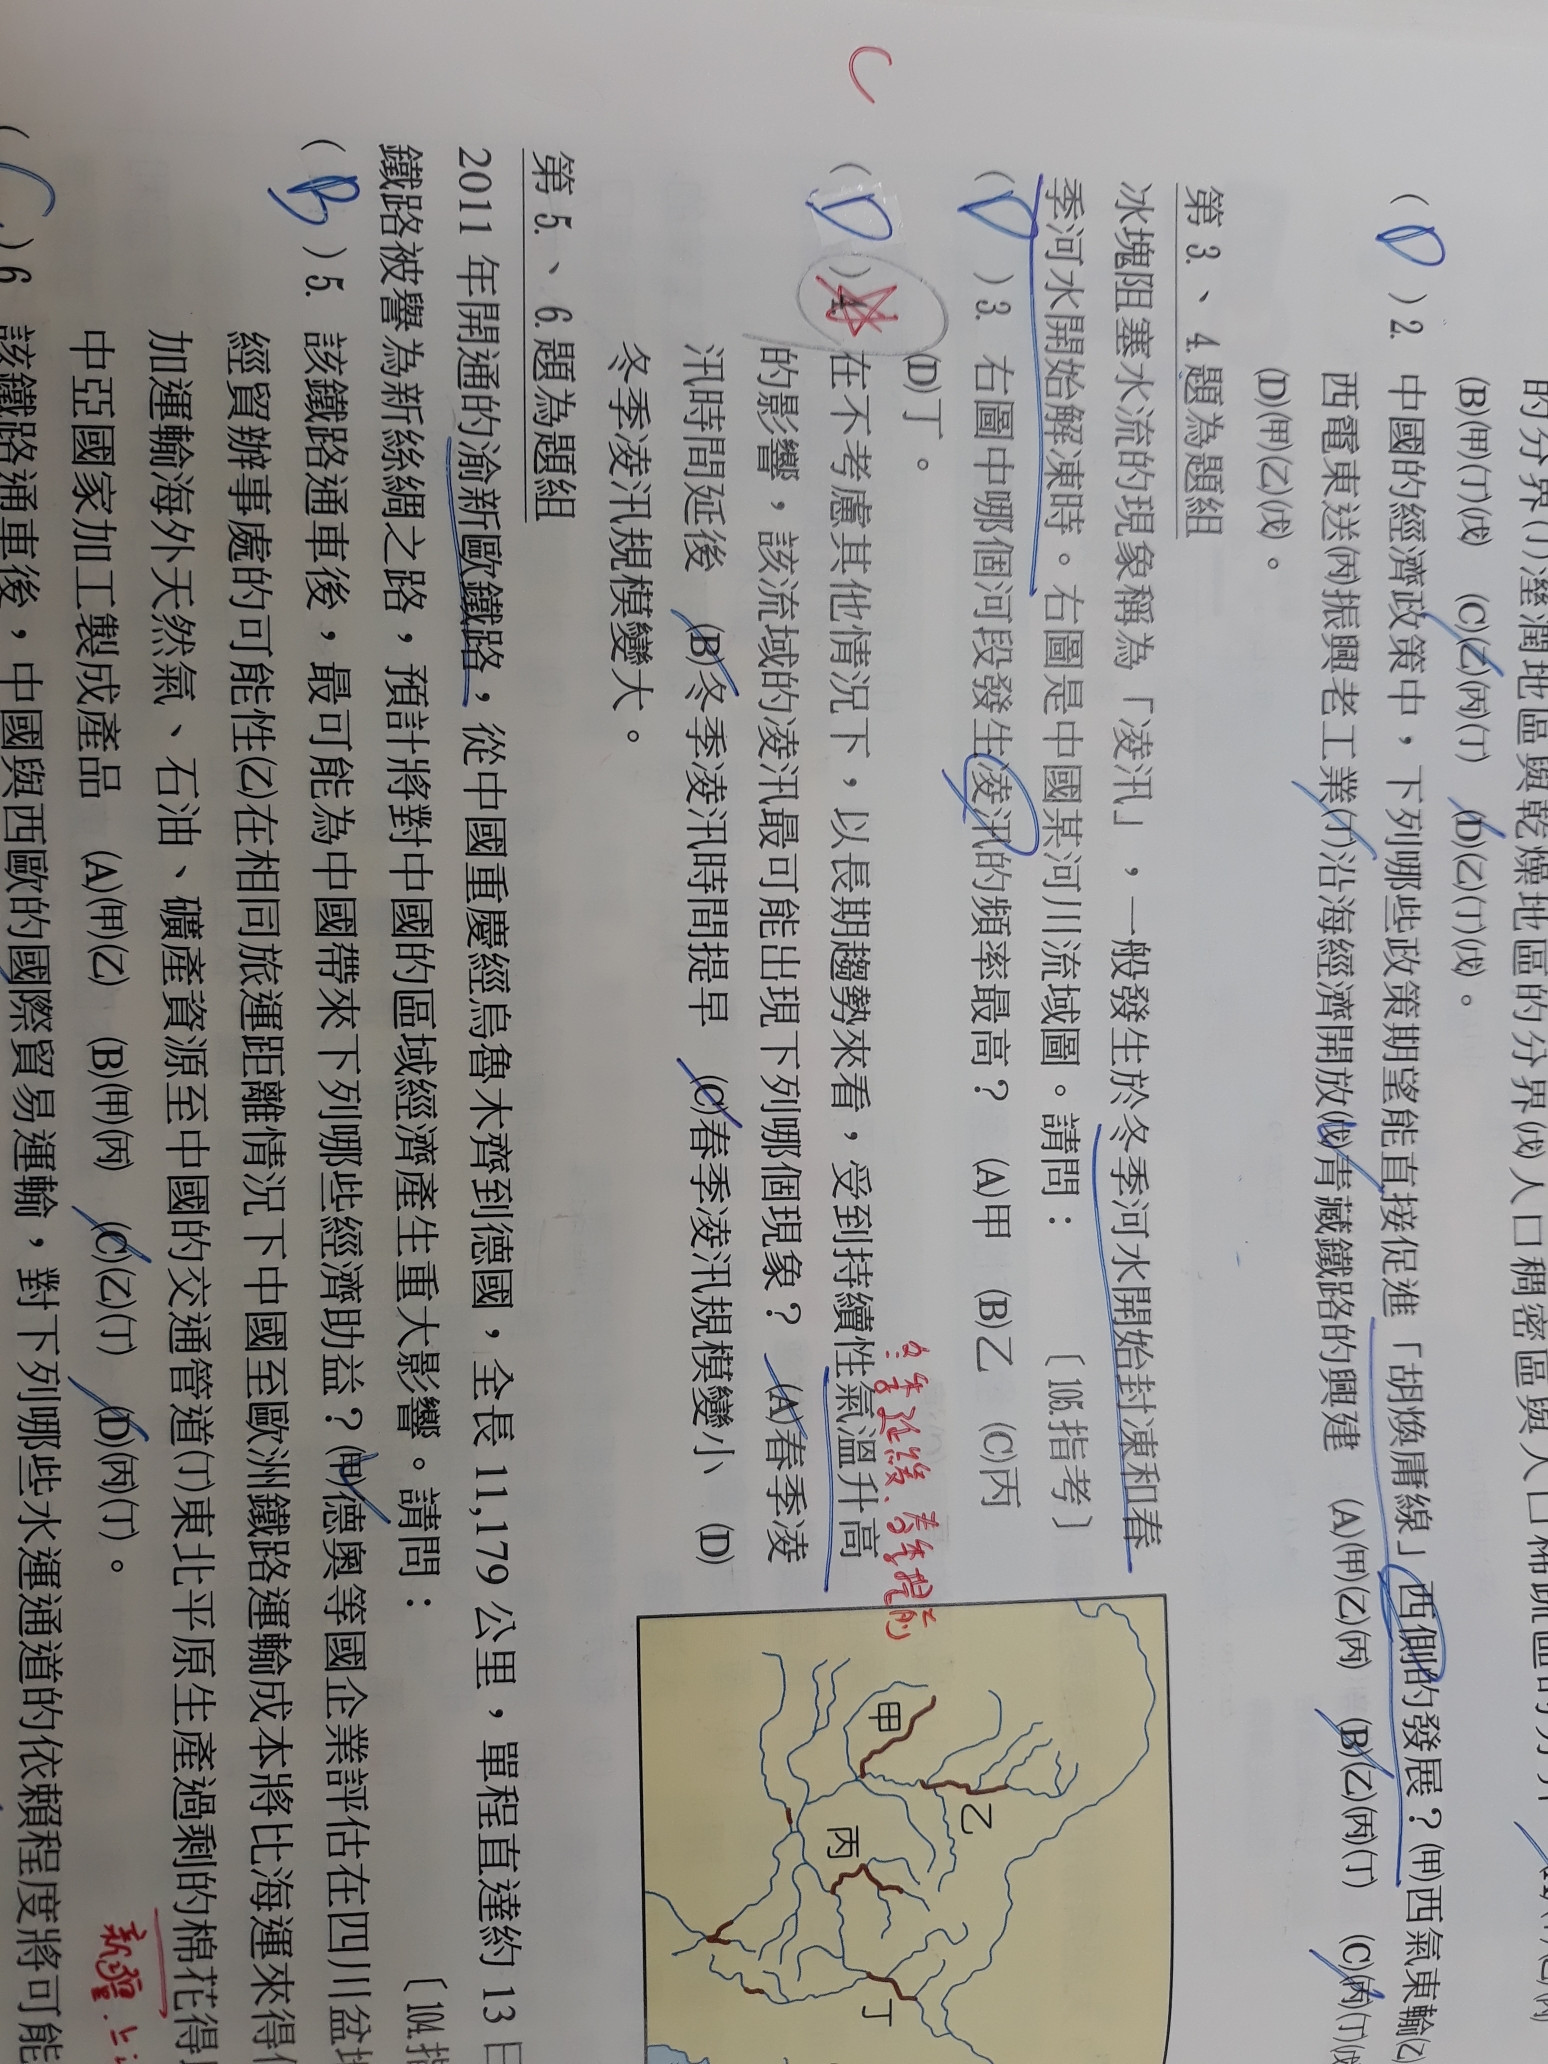 的分界(丁)溼潤地區與乾燥地區的分界(戊)人口稠密區與人口稀疏區的分界
(B)(甲)(丁)(戊) (C)(乙)(丙)(丁) (D)(乙)(丁)(戊)。
( D )2. 中國的經濟政策中，下列哪些政策期望能直接促進「胡煥庸線」西側的發展？(甲)西氣東輸(乙)
西電東送(丙)振興老工業(丁)沿海經濟開放(戊)青藏鐵路的興建 (A)(甲)(乙)(丙) (B)(乙)(丙)(丁) (C)(丙)(丁)(戊)
(D)(甲)(乙)(戊)。
第 3.、4.題為題組
冰塊阻塞水流的現象稱為「凌汛」，一般發生於冬季河水開始封凍和春
季河水開始解凍時。右圖是中國某河川流域圖。請問： 〔105.指考〕
( D )3. 右圖中哪個河段發生凌汛的頻率最高？ (A)甲 (B)乙 (C)丙
(D)丁。
冬季延後、春季提前
C
( D )4. 在不考慮其他情況下，以長期趨勢來看，受到持續性氣溫升高
的影響，該流域的凌汛最可能出現下列哪個現象？ (A)春季凌
汛時間延後 (B)冬季凌汛時間提早 (C)春季凌汛規模變小 (D)
冬季凌汛規模變大。
甲
乙
丙
丁
第 5.、6.題為題組
2011 年開通的渝新歐鐵路，從中國重慶經烏魯木齊到德國，全長 11,179 公里，單程直達約 13 日
鐵路被譽為新絲綢之路，預計將對中國的區域經濟產生重大影響。請問： 〔104.指
( B )5. 該鐵路通車後，最可能為中國帶來下列哪些經濟助益？(甲)德奧等國企業評估在四川盆地
經貿辦事處的可能性(乙)在相同旅運距離情況下中國至歐洲鐵路運輸成本將比海運來得低
加運輸海外天然氣、石油、礦產資源至中國的交通管道(丁)東北平原生產過剩的棉花得
中亞國家加工製成產品 (A)(甲)(乙) (B)(甲)(丙) (C)(乙)(丁) (D)(丙)(丁)。
新疆.
( C )6. 該鐵路通車後，中國與西歐的國際貿易運輸，對下列哪些水運通道的依賴程度將可能